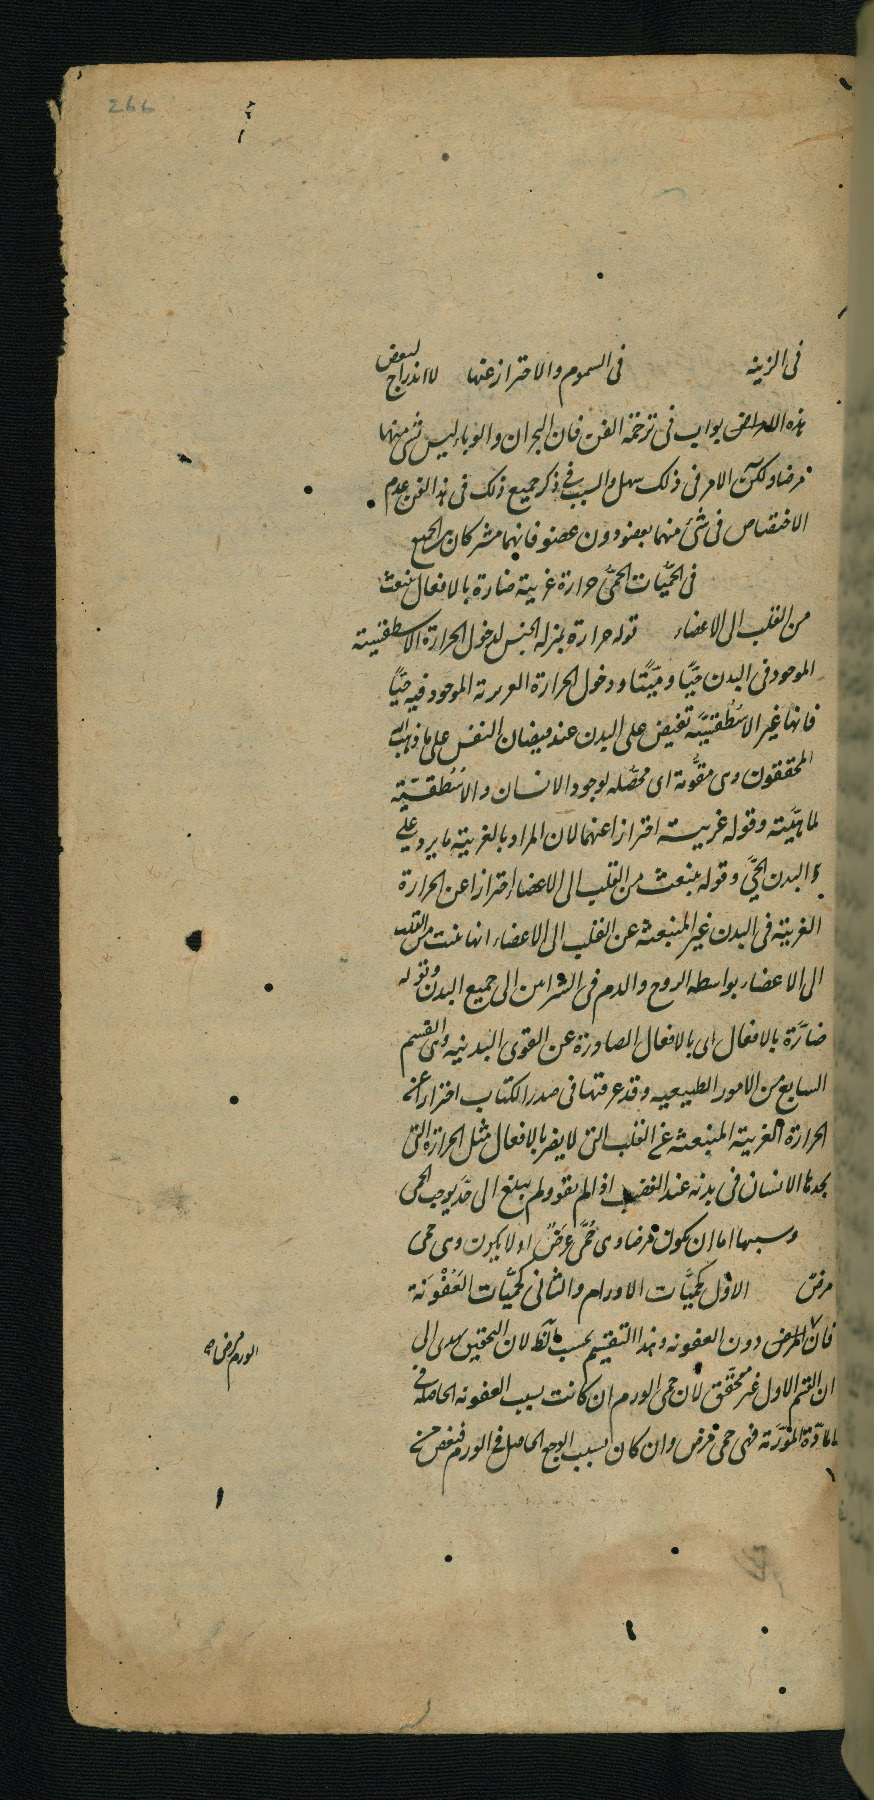 266
فى الزينه فى السموم والاحتراز عنها لا اندراج لبعض
هذه الامراض بواب فى ترجمة الفن فان البحران والوباء ليس شئ منهما
مرضا ولكن الامر فى ذلك سهل والسبب فى ذكر جميع ذلك فى هذا الفن عدم
الاختصاص فى شئ منهما بعضو دون عضو فانهما مشتركان للجميع
فى الحميات الحمى حرارة غريبة ضارة بالافعال تنبعث
من القلب الى الاعضاء قوله حرارة بمنزلة الجنس لدخول الحرارة الاسطقسيته
الموجود فى البدن حيًّا وميتًا ودخول الحرارة الغريزية الموجود فيه حيًّا
فانها غير الاسطقسية تفيض على البدن عند فيضان النفس على ما ذهب اليه
المحققون وهى مقومة اى محصله لوجود الانسان والاسطقسية
لماهيته وقوله غريبة احترازا عنهما لان المراد بالغريبة ما يرد على
البدن الحى وقوله ينبعث من القلب الى الاعضاء احترازا عن الحرارة
الغريبة فى البدن غير المنبعثة عن القلب الى الاعضاء انها تنبت من القلب
الى الاعضاء بواسطه الروح والدم فى الشرائين الى جميع البدن وقوله
ضارّة بالافعال اى بالافعال الصادرة عن القوى البدنيه وهى القسم
السابع من الامور الطبيعيه وقد عرفتها فى صدر الكتاب احترازا عن
الحرارة الغريبة المنبعثه عن القلب التى لا يضر بالافعال مثل الحرارة التى
يجدها الانسان فى بدنه عند الغضب اذا لم يقو ولم يبلغ الى حدّ يوجب الحمى
وسببها اما ان يكون مرضا وهى حمى عرضٌ او لا يكون وهى حمى
مرض الاوّل كحميّات الاورام والثانى كحميّات العفونة
فان المرض دون العفونه وهذا التقسيم بحسب لان التحقيق يهدى الى
الورم مرض صح
ان القسم الاول غير محقّق لان حمى الورم ان كانت بسبب العفونه الحاصلة فى
المادّة المورّمة فهى حمى مرض وان كان بسبب الوجع الحاصل فى الورم